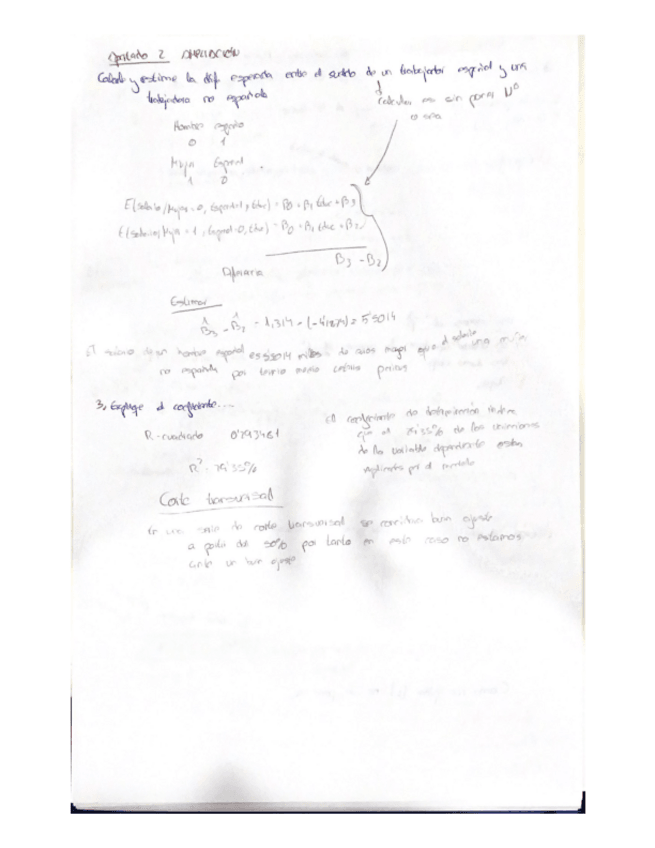 Apartado 2 AMPLIACIÓN
Calcule y estime la dif. esperada entre el sueldo de un trabajador español y una
trabajadora no española
calcular es sin poner Nº
o sea
Hombre español
0 1
Mujer Español
1 0
E(salario/Mujer=0, Español=1, Educ) = B0 + B1 Educ + B3
E(salario/Mujer=1, Español=0, Educ) = B0 + B1 Educ + B2
B3 - B2
Diferencia
Estimar
B̂3 - B̂2 = 1,314 - (-4'1874) = 5'5014
El salario de un hombre español es 5'5014 miles de euros mayor que el salario una mujer
no española por termino medio ceteris paribus
3, Explique el coeficiente....
R-cuadrado
R² =
el coeficiente de determinación indica
que el % de las variaciones
de la variable dependiente estan
explicadas por el modelo
Corte transversal
En una serie de corte transversal se considera buen ajuste
a partir del 50% por tanto en este caso no estamos
ante un buen ajuste